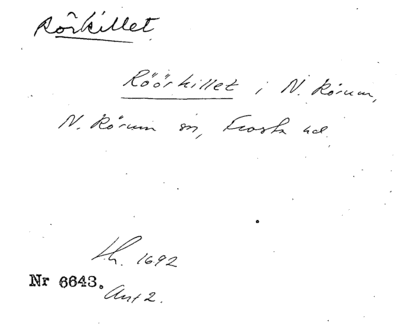 Rörkillet
Röörkillet i N. Rörum,
N. Rörum sn, Frosta hd.
Lh. 1692
Nr 6643. Ant 2.